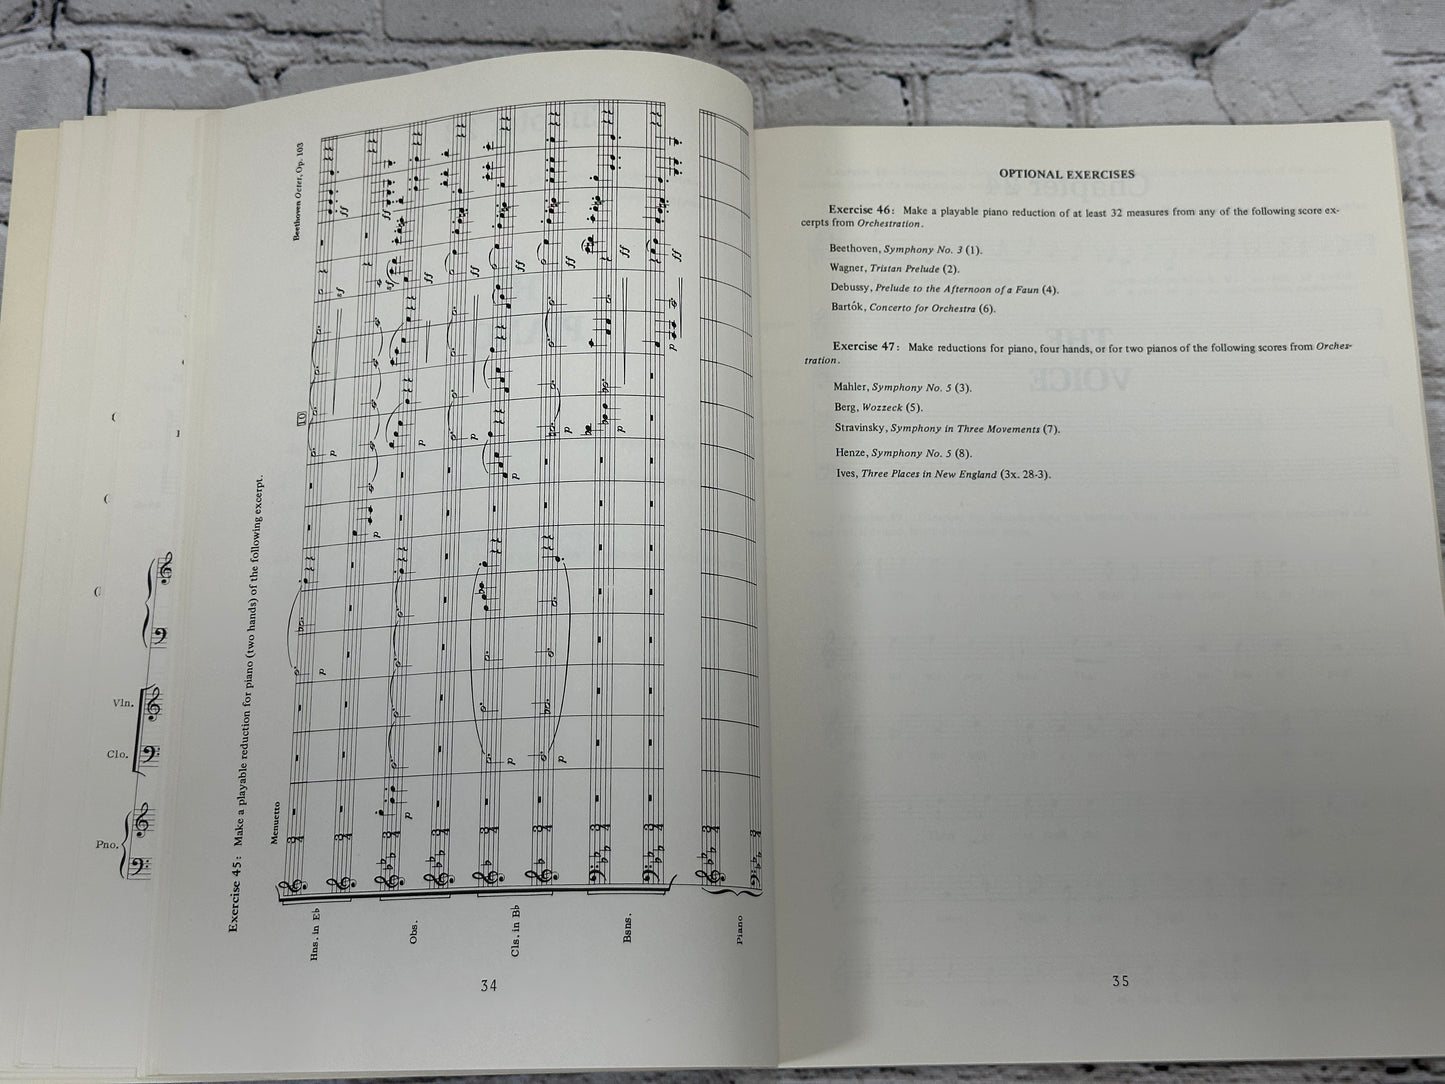 Vln.
Clo.
Pno.
Exercise 45: Make a playable reduction for piano (two hands) of the following excerpt.
Menuetto
Beethoven Octet, Op. 103
10
Hns. in E♭
Obs.
Cls. in B♭
Bsns.
Piano
p
p
p
p
p
p
p
p
p
p
p
p
p
sf
sf
ff
ff
ff
ff
ff
ff
ff
ff
34
OPTIONAL EXERCISES
Exercise 46: Make a playable piano reduction of at least 32 measures from any of the following score ex-
cerpts from Orchestration.
Beethoven, Symphony No. 3 (1).
Wagner, Tristan Prelude (2).
Debussy, Prelude to the Afternoon of a Faun (4).
Bartók, Concerto for Orchestra (6).
Exercise 47: Make reductions for piano, four hands, or for two pianos of the following scores from Orches-
tration.
Mahler, Symphony No. 5 (3).
Berg, Wozzeck (5).
Stravinsky, Symphony in Three Movements (7).
Henze, Symphony No. 5 (8).
Ives, Three Places in New England (3x. 28-3).
35